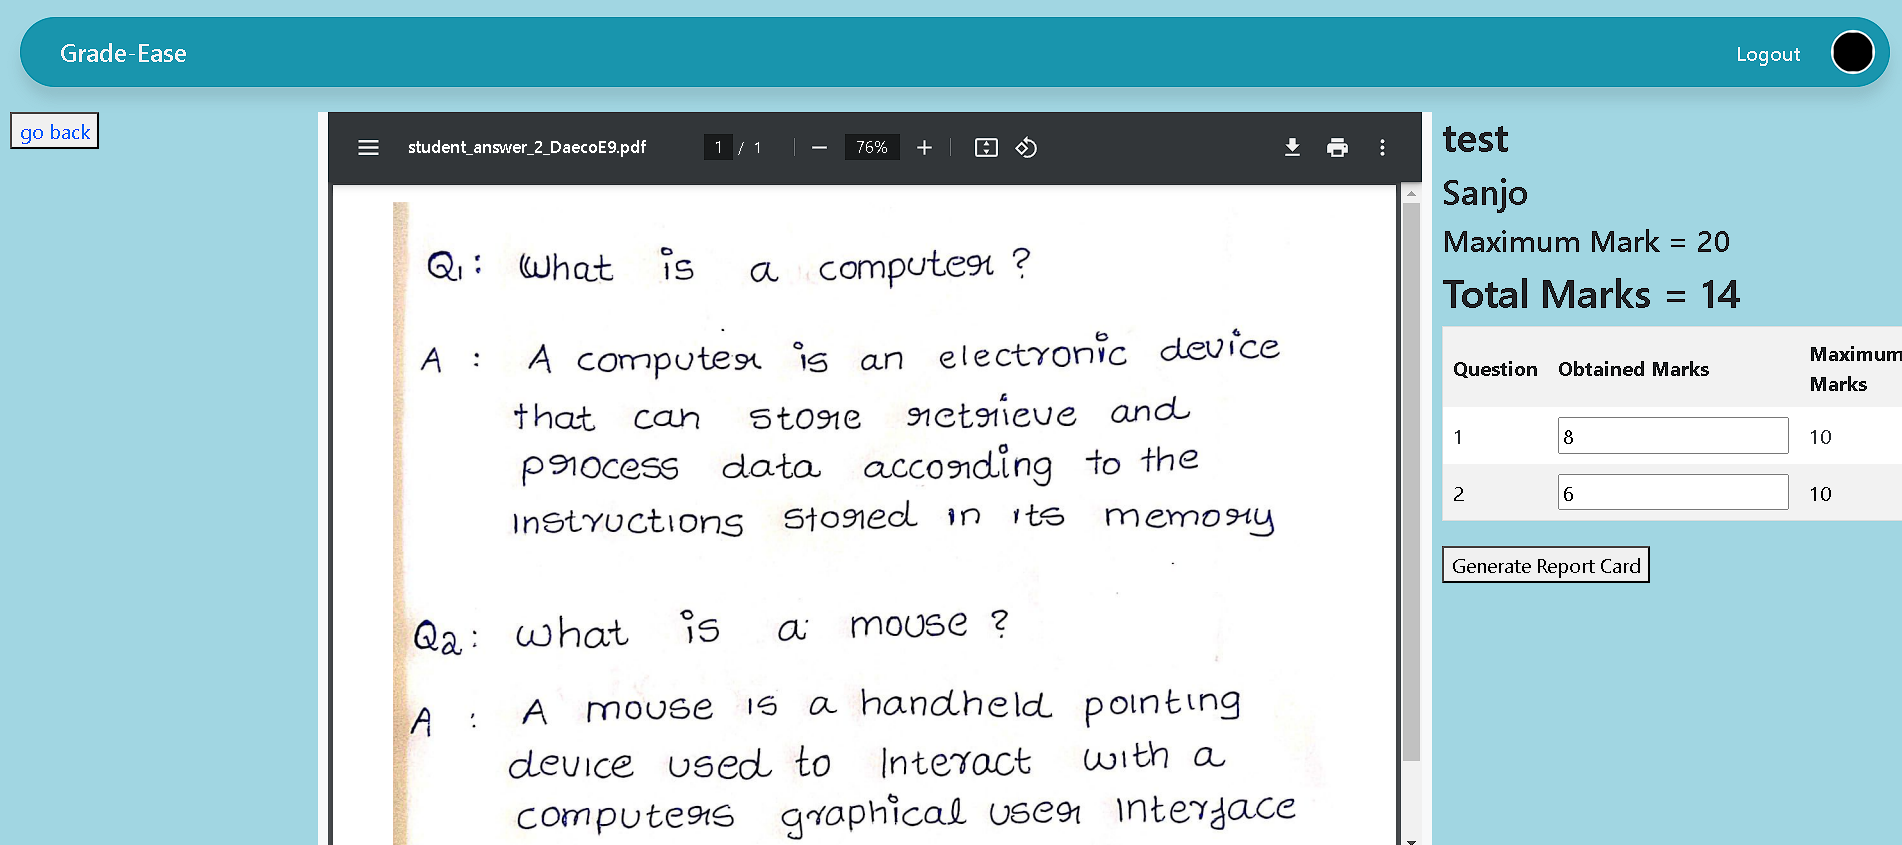 Grade-Ease
Logout
go back
student_answer_2_DaecoE9.pdf
1 / 1
76%
Q1: What is a computer ?
A : A computer is an electronic device
that can store retrieve and
process data according to the
instructions stored in its memory
Q2: what is a mouse ?
A : A mouse is a handheld pointing
device used to Interact with a
computers graphical user Interface
test
Sanjo
Maximum Mark = 20
Total Marks = 14
Question Obtained Marks Maximum
Marks
1 8 10
2 6 10
Generate Report Card